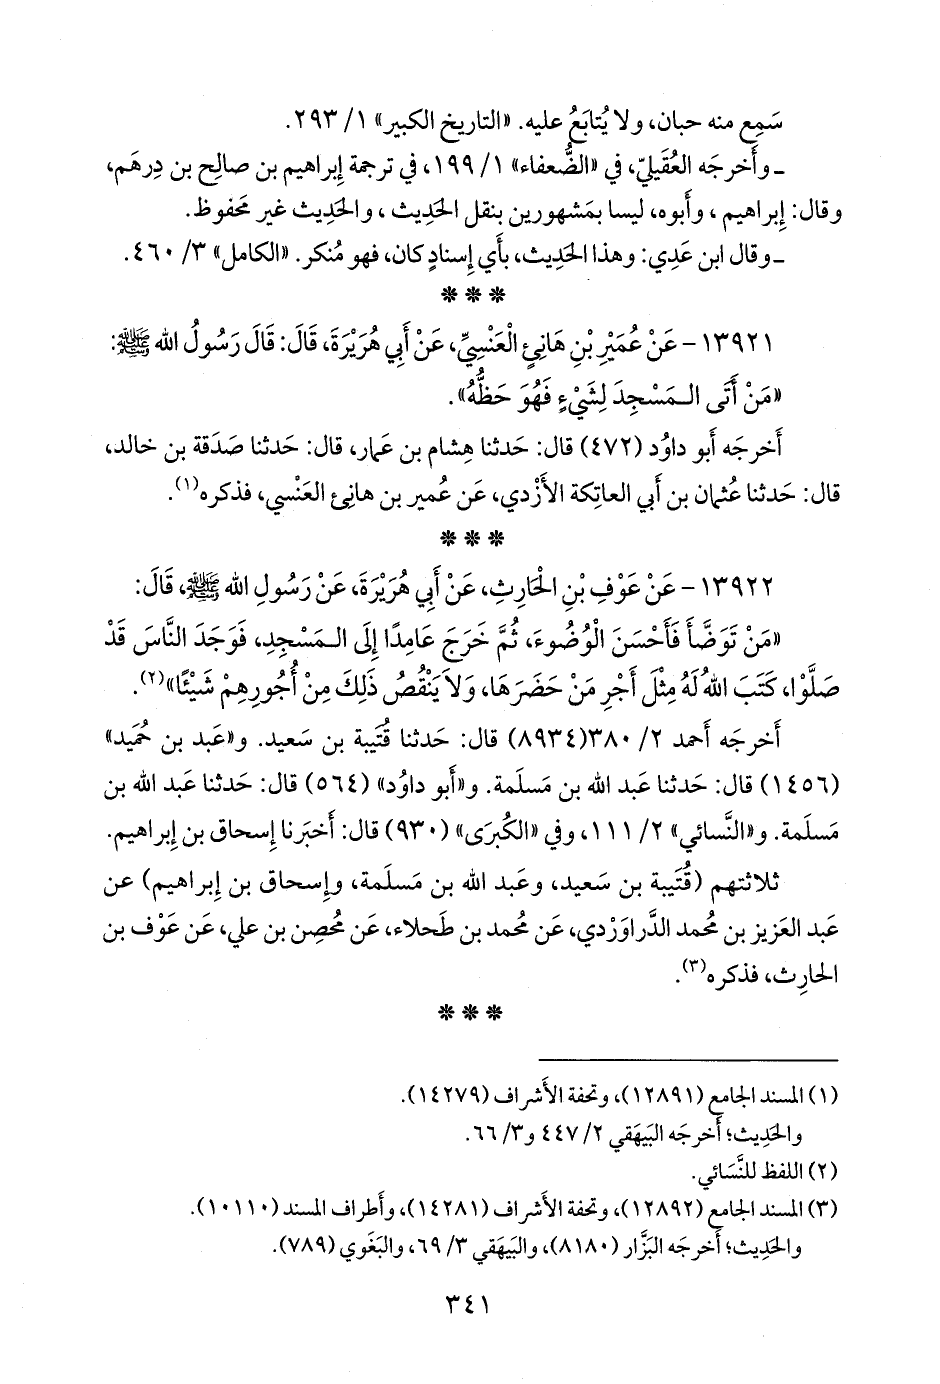 سَمِع منه حبان، ولا يُتابَعُ عليه. «التاريخ الكبير» ١/ ٢٩٣.
ـ وأَخرجَه العُقيليّ، في «الضُّعفاء» ١/ ١٩٩، في ترجمة إبراهيم بن صالِح بن دِرهَم،
وقال: إبراهيم، وأَبوه، ليسا بمَشهورين بنقل الحَدِيث، والحَدِيث غير مَحفوظ.
ـ وقال ابن عَدِي: وهذا الحَدِيث، بأَي إِسنادٍ كان، فهو مُنكر. «الكامل» ٣/ ٤٦٠.
* * *
١٣٩٢١ - عَنْ عُمَيْرِ بْنِ هَانِئٍ الْعَنْسِيِّ، عَنْ أَبِي هُرَيْرَةَ، قَالَ: قَالَ رَسُولُ الله ﷺ:
«مَنْ أَتَى الـمَسْجِدَ لِشَيْءٍ فَهُوَ حَظُّهُ».
أَخرجَه أَبو داوُد (٤٧٢) قال: حَدثنا هِشام بن عمار، قال: حَدثنا صَدَقة بن خالد،
قال: حَدثنا عُثمان بن أَبي العاتِكة الأَزْدي، عَن عُمير بن هانِئ العَنْسي، فذكره(١).
* * *
١٣٩٢٢ - عَنْ عَوْفِ بْنِ الْحَارِثِ، عَنْ أَبِي هُرَيْرَةَ، عَنْ رَسُولِ الله ﷺ، قَالَ:
«مَنْ تَوَضَّأَ فَأَحْسَنَ الْوُضُوءَ، ثُمَّ خَرَجَ عَامِدًا إِلَى الـمَسْجِدِ، فَوَجَدَ النَّاسَ قَدْ
صَلَّوْا، كَتَبَ اللهُ لَهُ مِثْلَ أَجْرِ مَنْ حَضَرَهَا، وَلاَ يَنْقُصُ ذَلِكَ مِنْ أُجُورِهِمْ شَيْئًا»(٢).
أَخرجَه أَحمد ٢/ ٣٨٠(٨٩٣٤) قال: حَدثنا قُتيبة بن سَعيد. و«عَبد بن حُميد»
(١٤٥٦) قال: حَدثنا عَبد الله بن مَسلَمة. و«أَبو داوُد» (٥٦٤) قال: حَدثنا عَبد الله بن
مَسلَمة. و«النَّسائي» ٢/ ١١١، وفي «الكُبرَى» (٩٣٠) قال: أَخبَرنا إِسحاق بن إِبراهيم.
ثلاثتهم (قُتيبة بن سَعيد، وعَبد الله بن مَسلَمة، وإِسحاق بن إِبراهيم) عن
عَبد العَزيز بن مُحمد الدَّراوَرْدي، عَن مُحمد بن طَحلاء، عَن مُحصِن بن علي، عَن عَوْف بن
الحارِث، فذكره(٣).
* * *
(١) المسند الجامع (١٢٨٩١)، وتحفة الأَشراف (١٤٢٧٩).
والحَدِيث؛ أَخرجَه البَيهَقي ٢/ ٤٤٧ و٣/ ٦٦.
(٢) اللفظ للنَّسَائي.
(٣) المسند الجامع (١٢٨٩٢)، وتحفة الأَشراف (١٤٢٨١)، وأَطراف المسند (١٠١١٠).
والحَدِيث؛ أَخرجَه البَزَّار (٨١٨٠)، والبَيهَقي ٣/ ٦٩، والبَغَوي (٧٨٩).
٣٤١